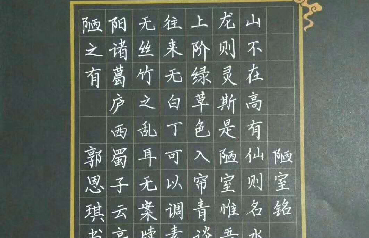 陋室铭
山不在高有仙则名水
龙则灵斯是陋室惟吾
上阶绿草色入帘青谈
往来无白丁可以调素
无丝竹之乱耳无案牍
阳诸葛庐西蜀子云亭
陋之有 郭思琪书